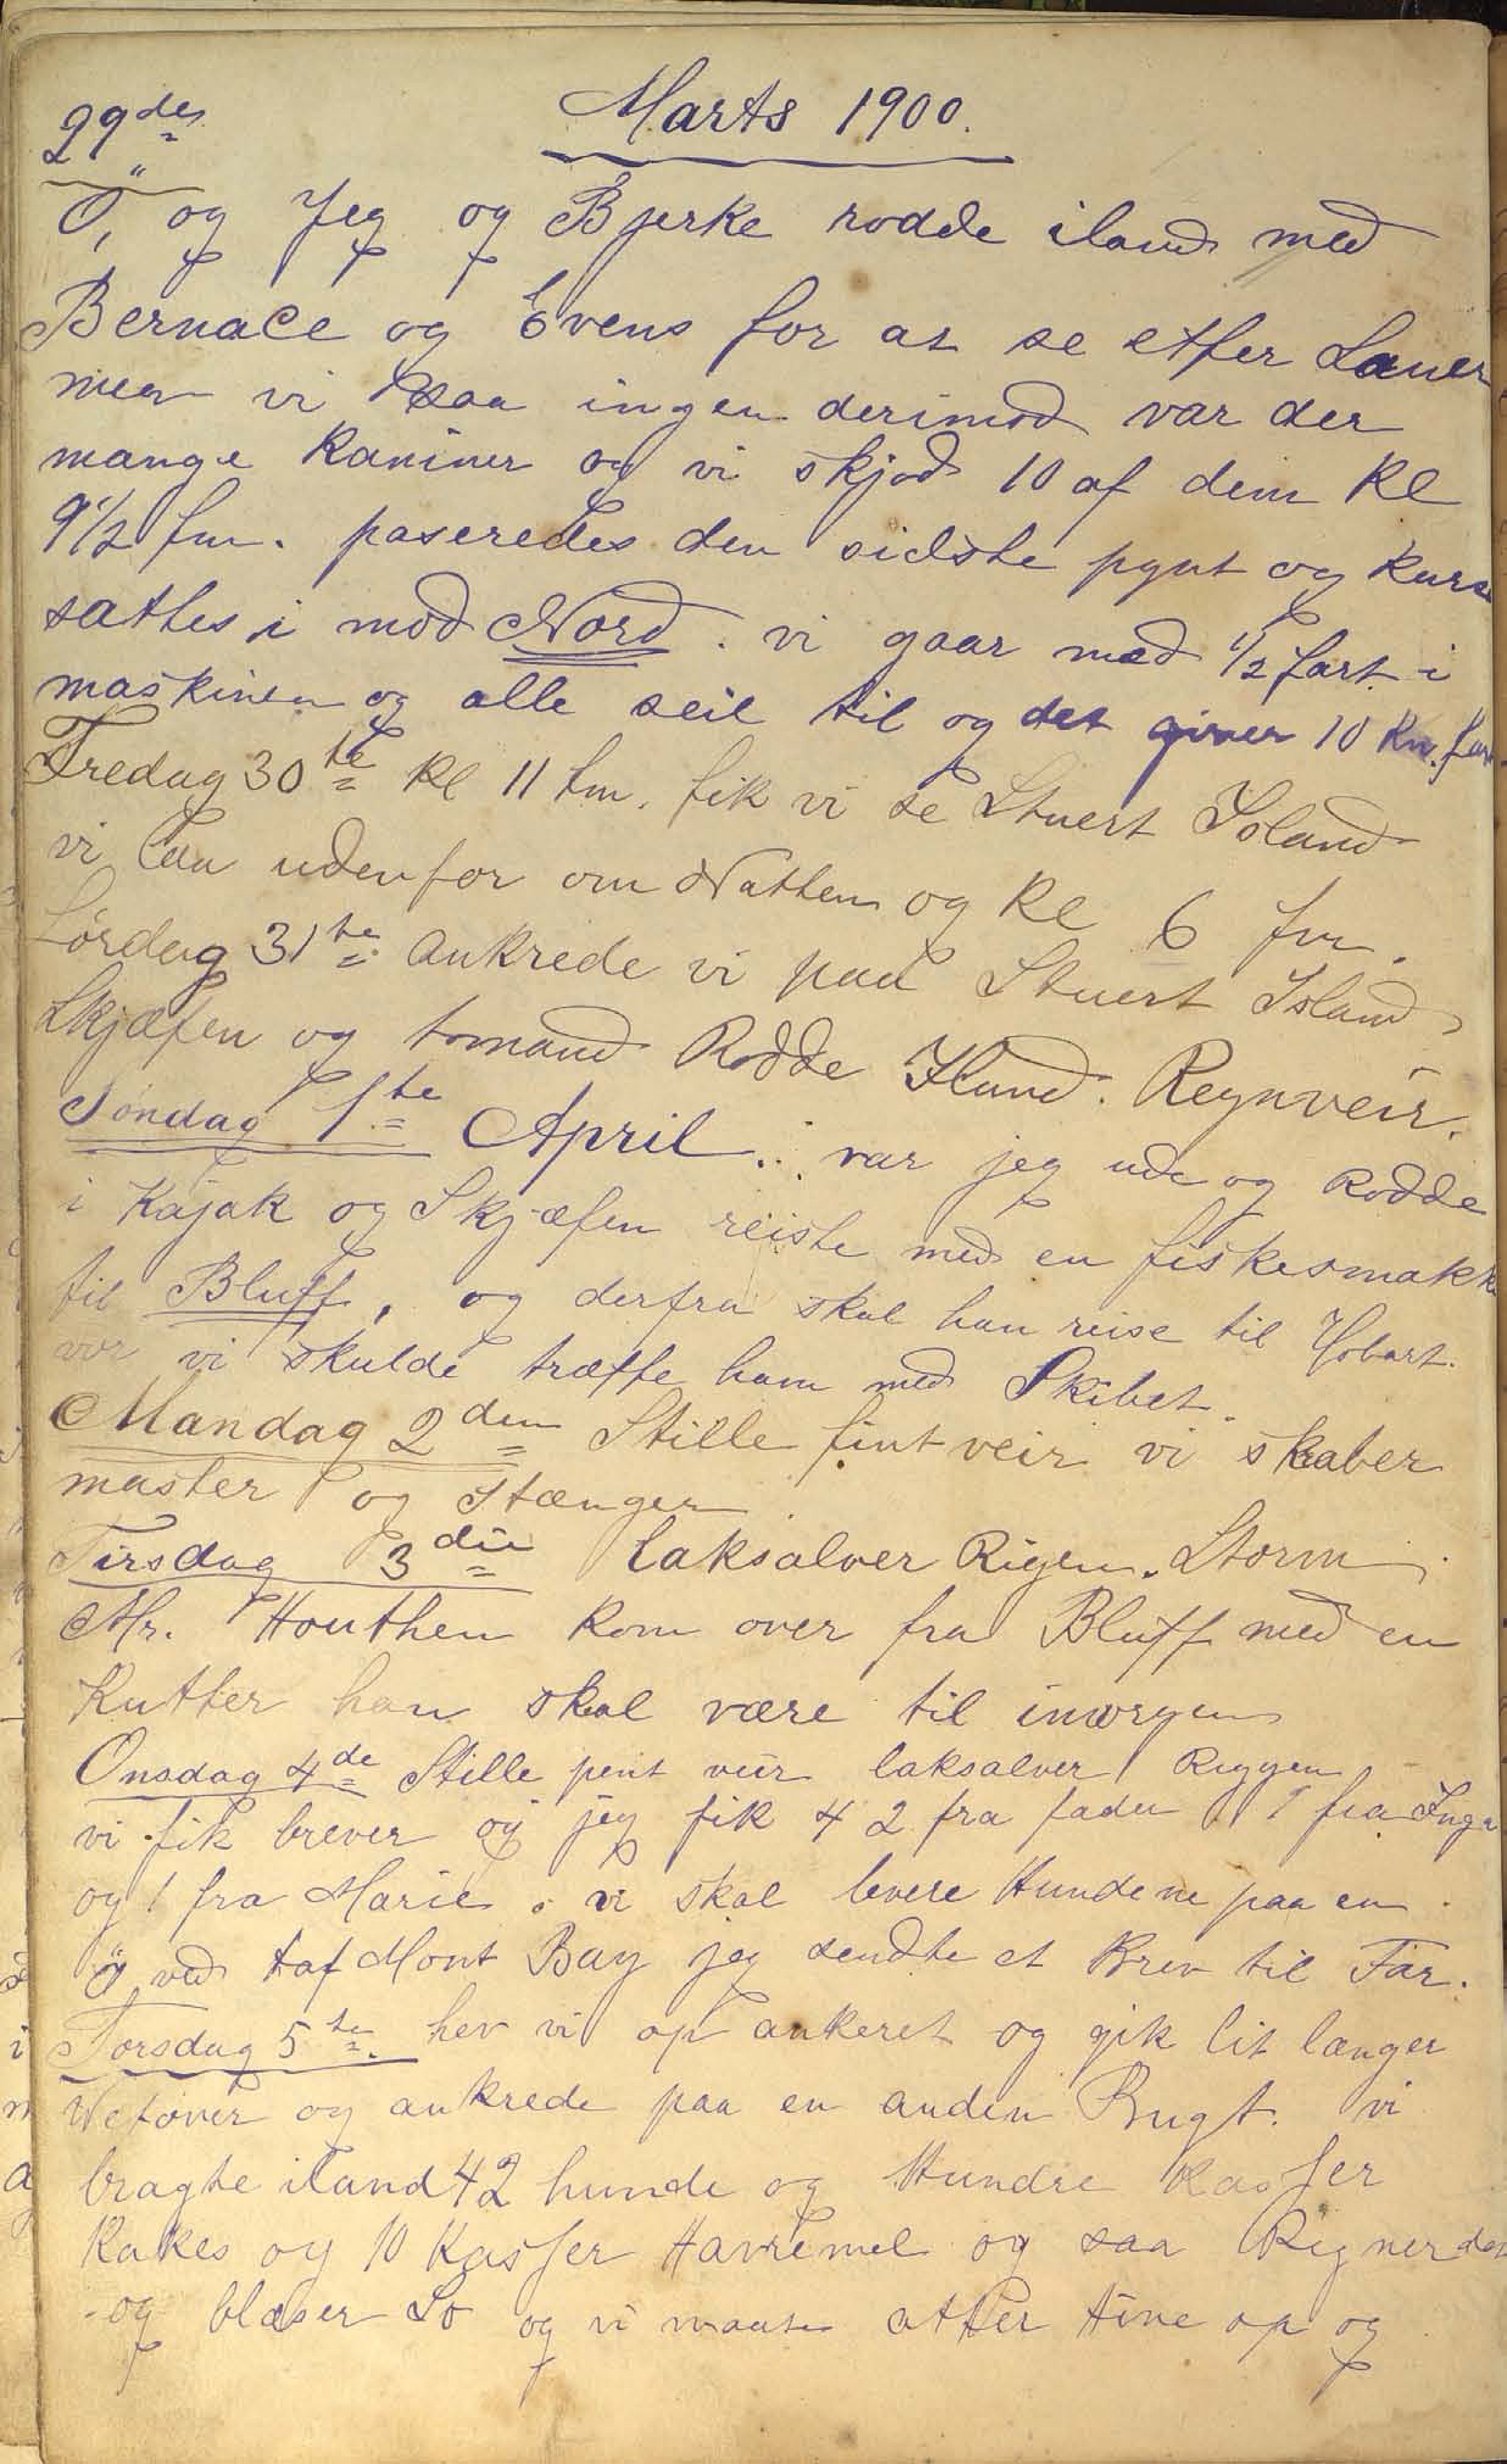 29de
Marts 1900.
Ö, og Jeg og Bjerke rodde iland med
Bernace og Evens for at se etfer Lauer
men vi saa ingen derimod var der
mange Kaniner og vi skjød 10 af dem Kl
9 1/2 fm. paseredes den sidste pynt og Kurs
sattes i mod Nord. vi gaar med 1/2 fart i
maskinen og alle seil til og det giver 10 Kn. far
Fredag 30te Kl 11 fm. fik vi se Stuert Island
vi laa udenfor om Natten og Kl 6 fm.
Lördag 31te ankrede vi paa Stuert Island
Skjæfen og tomand Rodde Iland. Regnveir.
Söndag 1te April. var jeg ude og Rodde
i Kajak og Skjæfen reiste med en fiskesmakke
til Bluff, og derfra skal han reise til Hobart.
vor vi skulde træffe ham med Skibet.
Mandag 2den Stille fint veir vi skraber
master og Stænger
Tirsdag 3die laksalver Rigen. Storm
Mr. Houthen Kom over fra Bluff med en
Kutter han skal være til imorgen
Onsdag 4de Stille pent veir laksalver Riggen
vi fik brever og jeg fik 4 2 fra fader 1 fra Inga
og 1 fra Marie. vi skal levere Hundene paa en
ö ved Haf Mont Bay jeg sendte et Brev til Far.
Torsdag 5te hev vi op ankeret og gik lit længer
Vetover og ankrede paa en anden Bugt. vi
bragte iland 42 hunde og Hundre Kasser
Kakes og 10 Kasser Havremel og saa Regner det
og blæser So og vi maate atter Hive op og